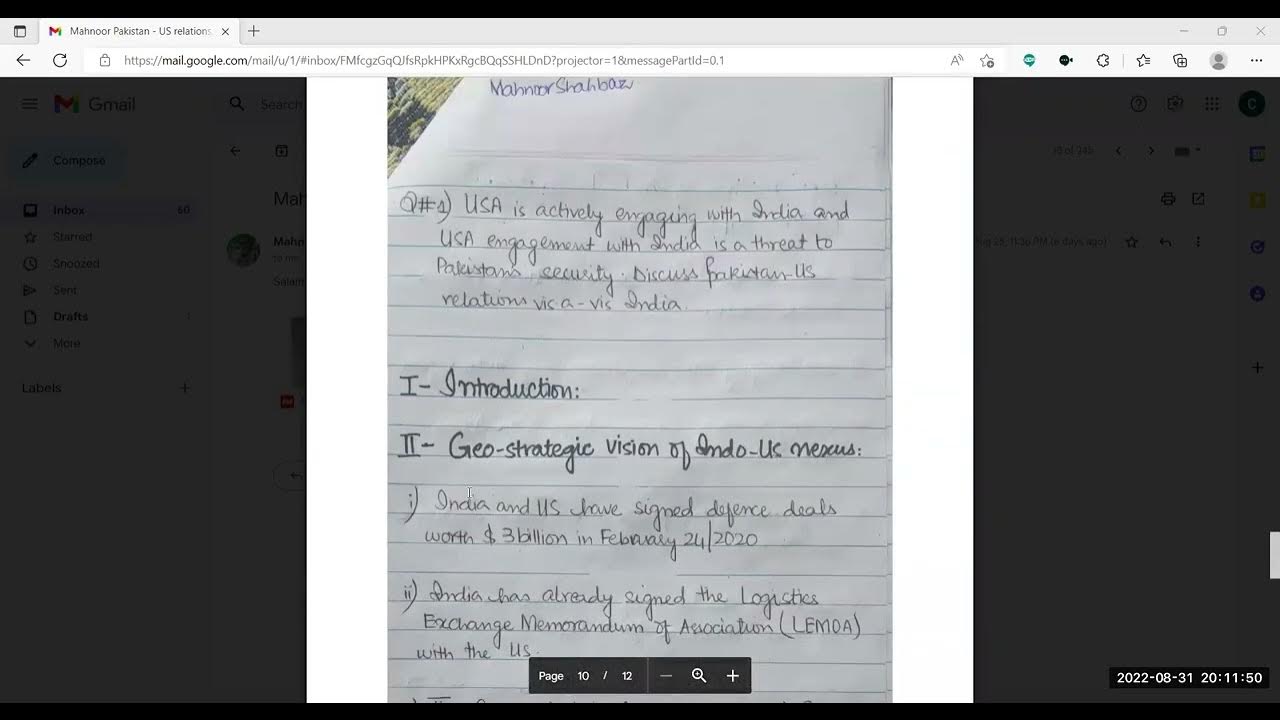 Mahnoor Pakistan - US relations
https://mail.google.com/mail/u/1/#inbox/FMfcgzGqQJfsRpkHPKxRgcBQqSSHLDnD?projector=1&messagePartId=0.1
Gmail
Search
Compose
Mah
10 of 245
Inbox 60
Starred
Snoozed
Sent
Drafts 1
More
Labels
Mahn
to me
Aug 25, 11:36 PM (6 days ago)
Salam
C
MahnoorShahbaz
Q#1) USA is actively engaging with India and
USA engagement with India is a threat to
Pakistan's security. Discuss Pakistan-US
relations vis a-vis India.
I- Introduction:
II- Geo-strategic vision of Indo-Us nexus:
i) India and US have signed defence deals
worth $ 3billion in February 24/2020
ii) India has already signed the Logistics
Exchange Memorandum of Association (LEMOA)
with the US.
Page 10 / 12
2022-08-31 20:11:50